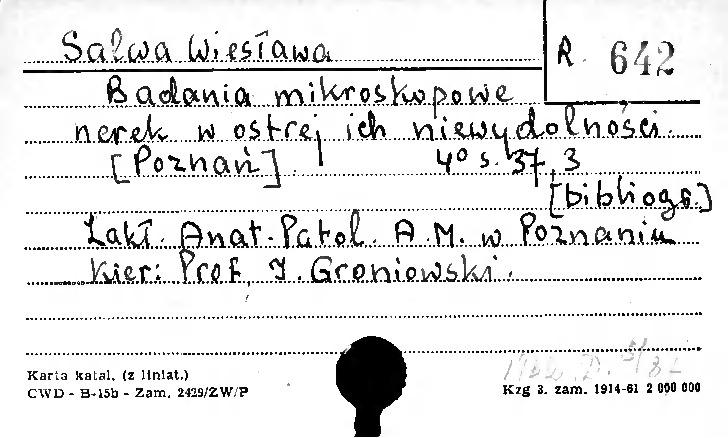 Salwa Wiesława
R. 642
Badania mikroskopowe
nerek w ostrej ich niewydolności.
[Poznań]. 4° s. 37, 3
[bibliogr.]
Zakł. Anat. Patol. A.M. w Poznaniu
Kier: Prof. J. Groniowski.
Karta katal. (z liniat.)
CWD - B-15b - Zam. 2429/ZW/P
Kzg 3. zam. 1914-61 2 000 000